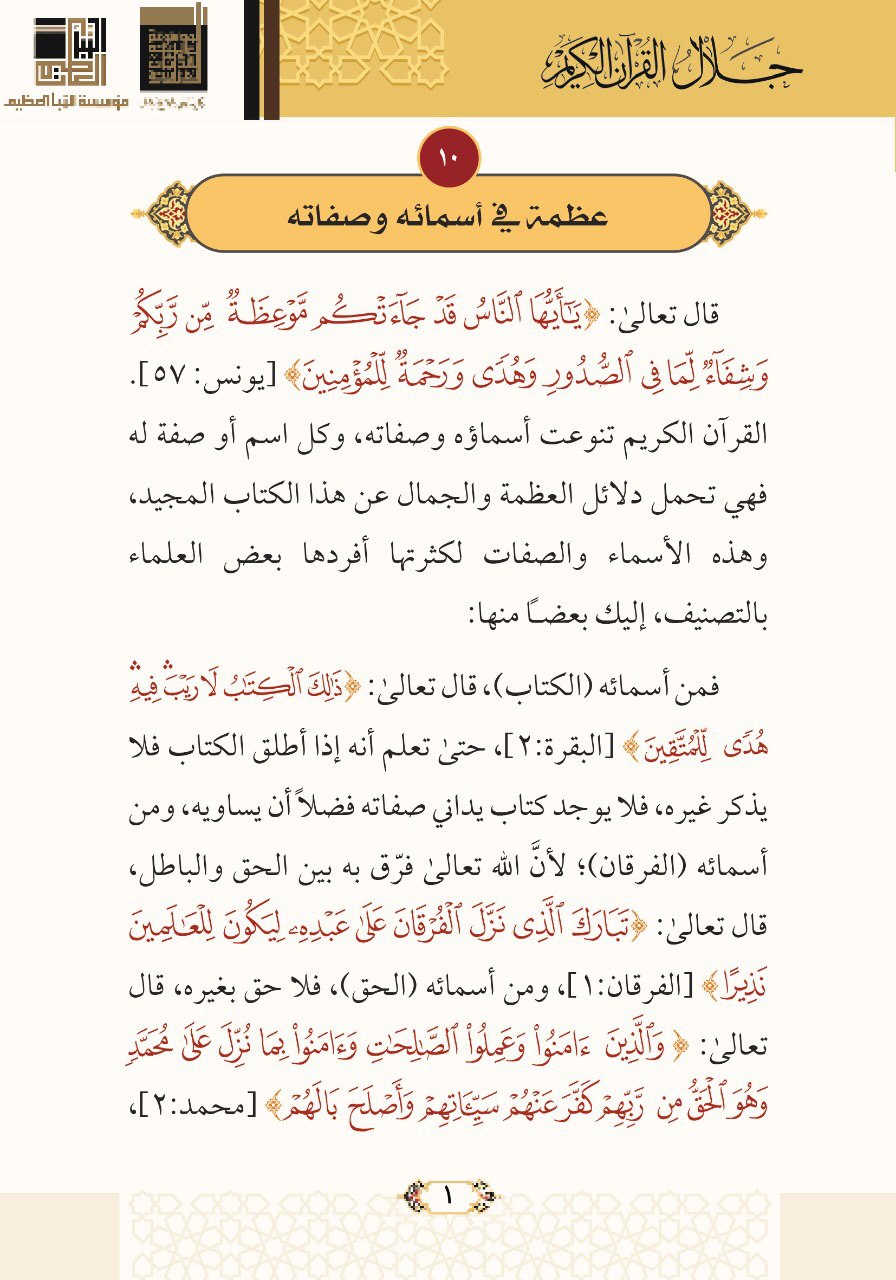 جلال القرآن الكريم
مؤسسة النبأ العظيم
١٠
عظمة في أسمائه وصفاته
قال تعالىٰ: ﴿يَـٰٓأَيُّهَا ٱلنَّاسُ قَدۡ جَآءَتۡكُم مَّوۡعِظَةٌ مِّن رَّبِّكُمۡ
وَشِفَآءٌ لِّمَا فِى ٱلصُّدُورِ وَهُدًى وَرَحۡمَةٌ لِّلۡمُؤۡمِنِينَ﴾ [يونس: ٥٧].
القرآن الكريم تنوعت أسماؤه وصفاته، وكل اسم أو صفة له
فهي تحمل دلائل العظمة والجمال عن هذا الكتاب المجيد،
وهذه الأسماء والصفات لكثرتها أفردها بعض العلماء
بالتصنيف، إليك بعضًا منها:
فمن أسمائه (الكتاب)، قال تعالىٰ: ﴿ذَٰلِكَ ٱلۡكِتَـٰبُ لَا رَيۡبَۛ فِيهِۛ
هُدًى لِّلۡمُتَّقِينَ﴾ [البقرة:٢]، حتىٰ تعلم أنه إذا أطلق الكتاب فلا
يذكر غيره، فلا يوجد كتاب يداني صفاته فضلاً أن يساويه، ومن
أسمائه (الفرقان)؛ لأنَّ الله تعالىٰ فرّق به بين الحق والباطل،
قال تعالىٰ: ﴿تَبَارَكَ ٱلَّذِى نَزَّلَ ٱلۡفُرۡقَانَ عَلَىٰ عَبۡدِهِۦ لِيَكُونَ لِلۡعَـٰلَمِينَ
نَذِيرًا﴾ [الفرقان:١]، ومن أسمائه (الحق)، فلا حق بغيره، قال
تعالىٰ: ﴿وَٱلَّذِينَ ءَامَنُوا۟ وَعَمِلُوا۟ ٱلصَّـٰلِحَـٰتِ وَءَامَنُوا۟ بِمَا نُزِّلَ عَلَىٰ مُحَمَّدٍ
وَهُوَ ٱلۡحَقُّ مِن رَّبِّهِمۡ كَفَّرَ عَنۡهُمۡ سَيِّـَٔاتِهِمۡ وَأَصۡلَحَ بَالَهُمۡ﴾ [محمد:٢]،
١